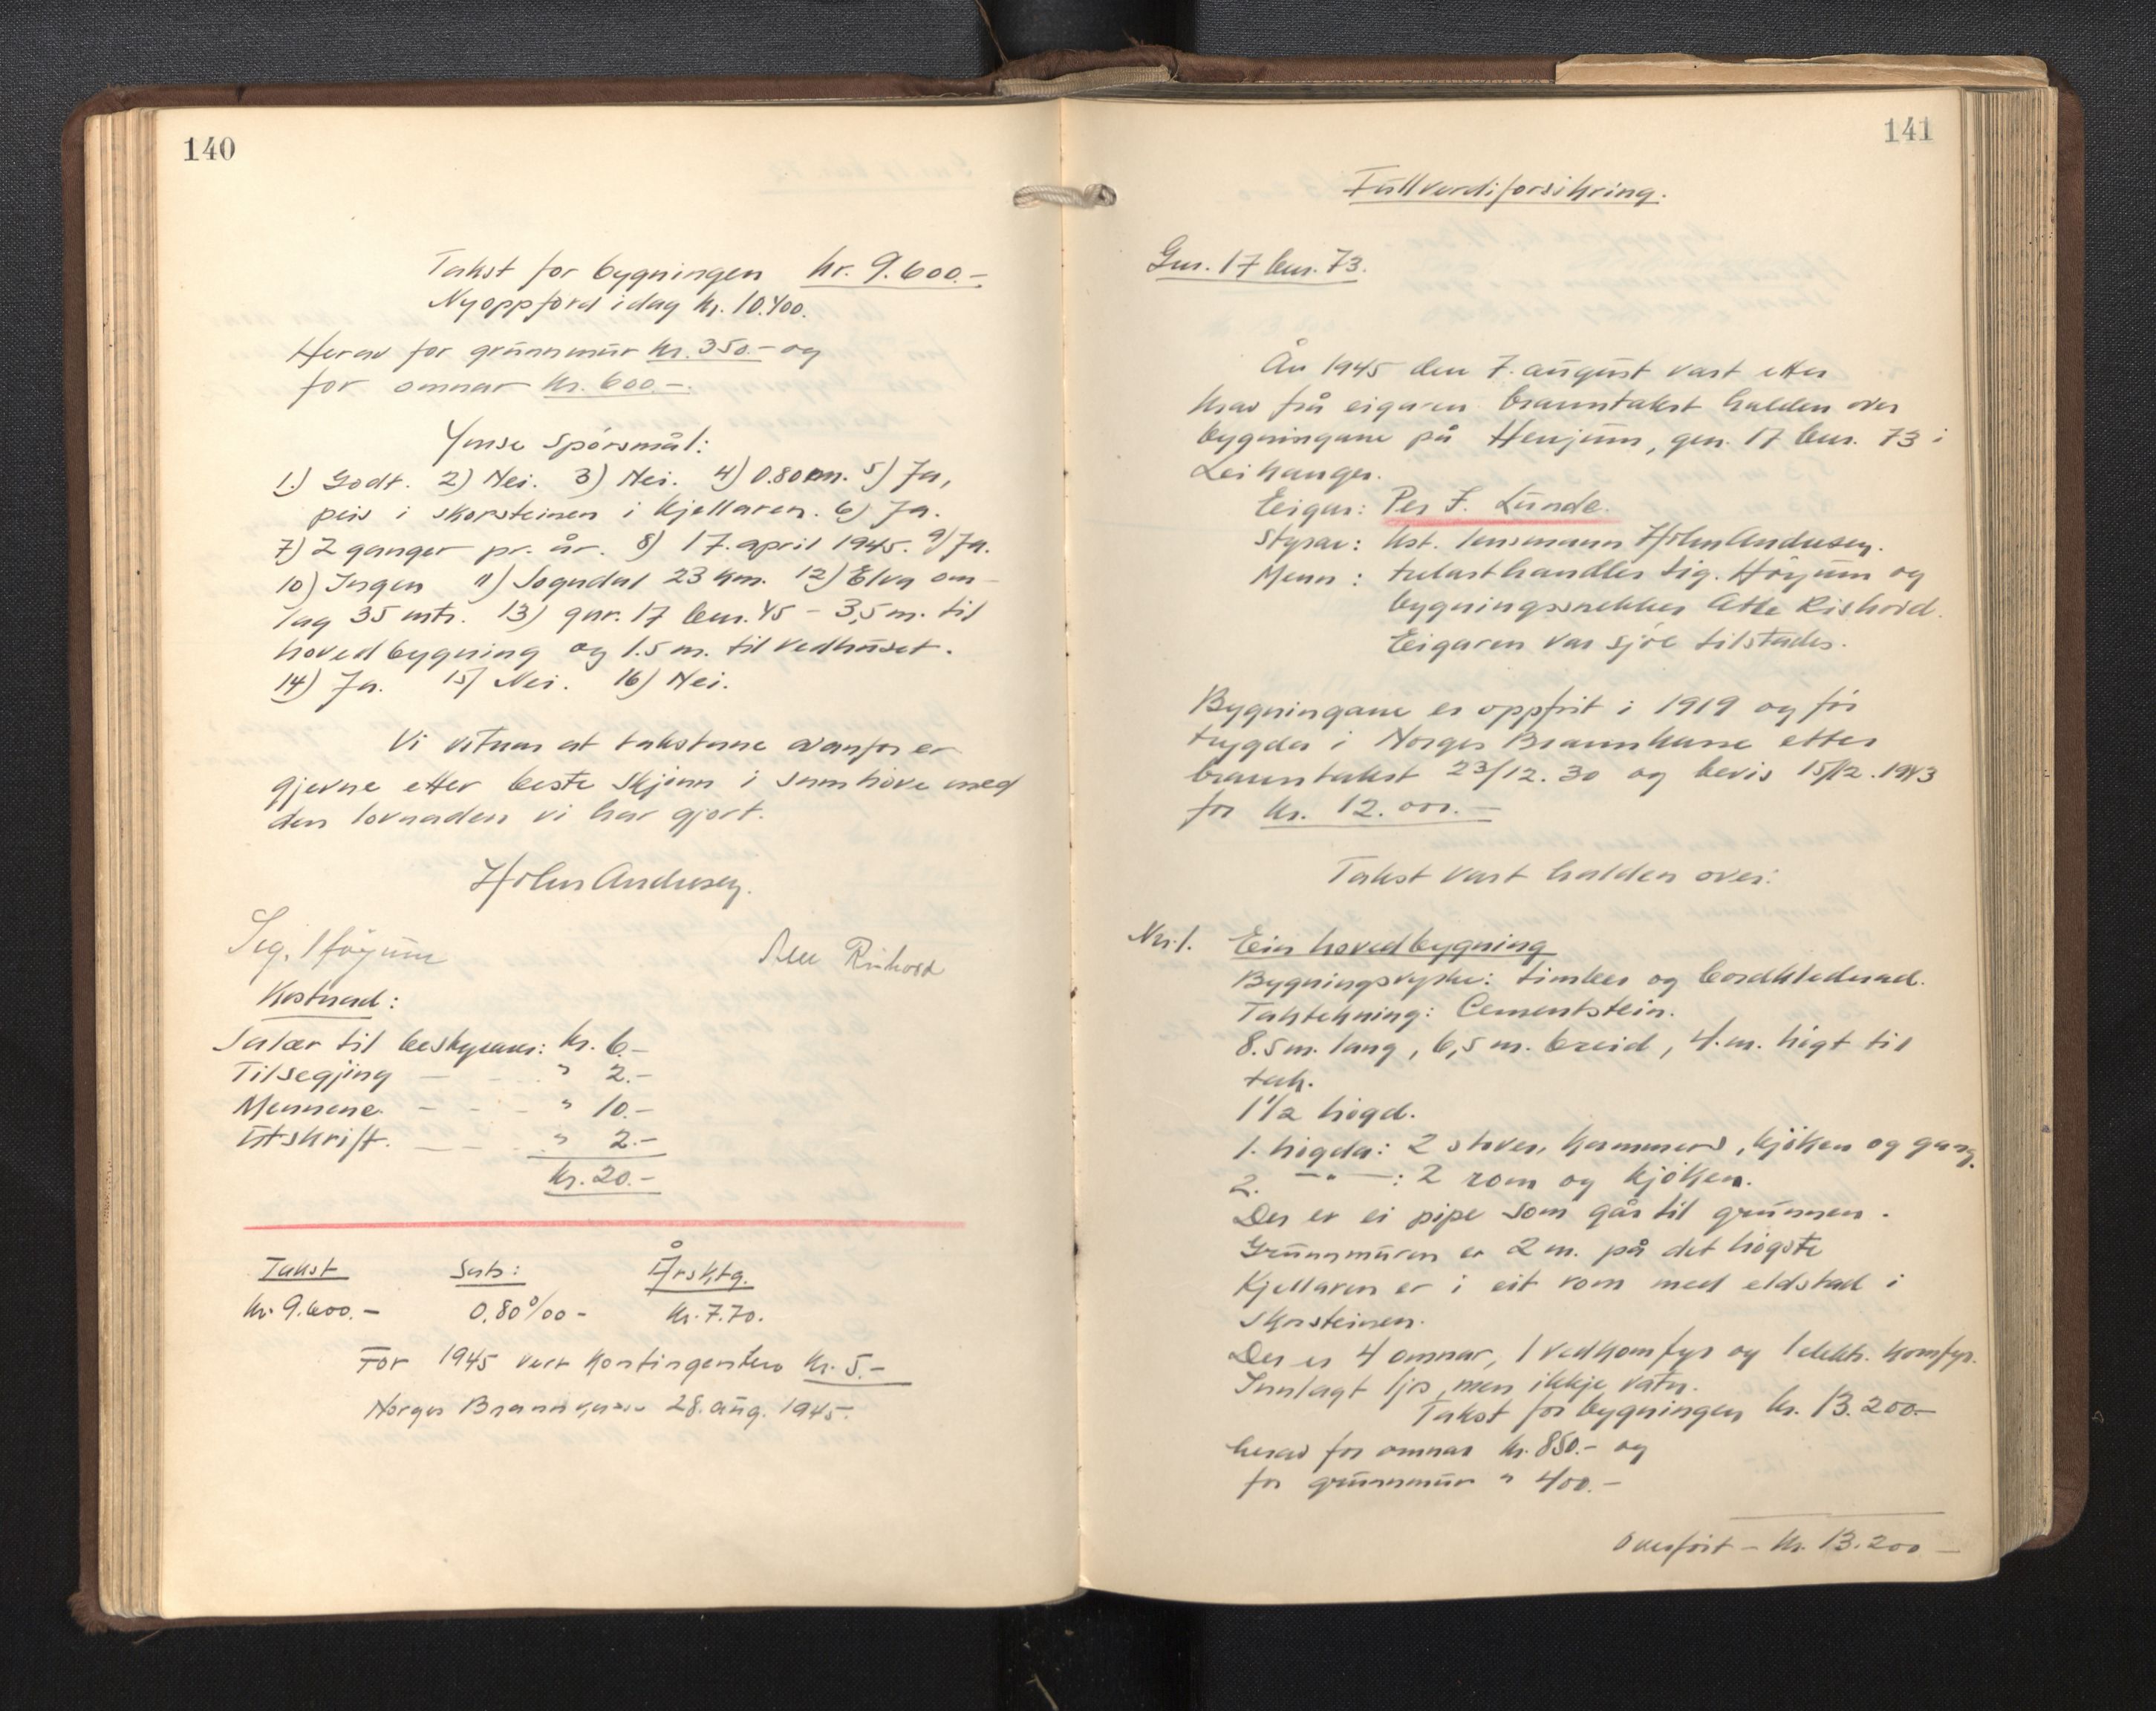 140
Takst for bygningen kr. 9.600.-
Nyoppførd idag kr. 10.400.
Herav for grunnmur kr. 350.- og
for omnar kr. 600.-
Ymse spørsmål:
1.) Godt. 2) Nei. 3) Nei. 4) 0.80 cm. 5) Ja,
peis i skorsteinen i kjellaren. 6) Ja.
7) 2 ganger pr. år. 8) 17. april 1945. 9) Ja.
10) Ingen 11) Sogndal 23 km. 12) Elva om-
lag 35 mtr. 13) gnr. 17 bnr. 45 - 3,5 m. til
hovedbygning og 1.5 m. til vedhuset.
14) Ja. 15) Nei. 16) Nei.
Vi vitnar at takstane ovanfor er
gjevne etter beste skjønn i samhøve med
den lovnaden vi har gjort.
H Holm Andresen.
Sig. Høyum Atle Rishovd
Kostnad:
Salær til beskyraren: kr. 6.-
Tilsegjing - - " 2.-
Mennene. - - - " 10.-
Utskrift. - - " 2.-
kr. 20.-
Takst Sats: Årsktg.
kr. 9.600.- 0,80 0/00 - kr. 7.70.
For 1945 vert kontingenten kr. 5.-
Norges Brannkasse 28. aug. 1945.
141
Fullverdiforsikring.
Gnr. 17 bnr. 73.
År 1945 den 7. august vart etter
krav frå eigaren branntakst halden over
bygningane på Henjum, gnr. 17 bnr. 73 i
Leikanger.
Eigar: Per J. Lunde.
Styrar: kst. lensmann H Holm Andresen.
Menn: trelasthandler Sig. Høyum og
bygningssnekker Atle Rishovd.
Eigaren var sjøl tilstades.
Bygningane er oppført i 1919 og før
trygda i Norges Brannkasse etter
branntakst 23/12. 30 og bevis 15/12. 1943
for kr. 12.000.-
Takst vart halden over:
Nr. 1. Ein hovedbygning
Bygningsvyrke: timber og bordkledenad.
Taktekning: Cementstein.
8.5 m. lang, 6,5 m. breid, 4. m. høgt til
tak.
1 1/2 høgd.
1. høgda: 2 stover, kammers, kjøken og gang.
2. -"-: 2 rom og kjøken.
Der er ei pipe som går til grunnen.
Grunnmuren er 2 m. på det høgste
Kjellaren er i eit rom med eldstad i
skorsteinen.
Der er 4 omnar, 1 vedkomfyr og 1 elektr. komfyr.
Innlagt ljos, men ikkje vatn.
Takst for bygningen kr. 13.200.-
herav for omnar kr. 850.- og
for grunnmur " 400.-
Overført - kr. 13.200 -